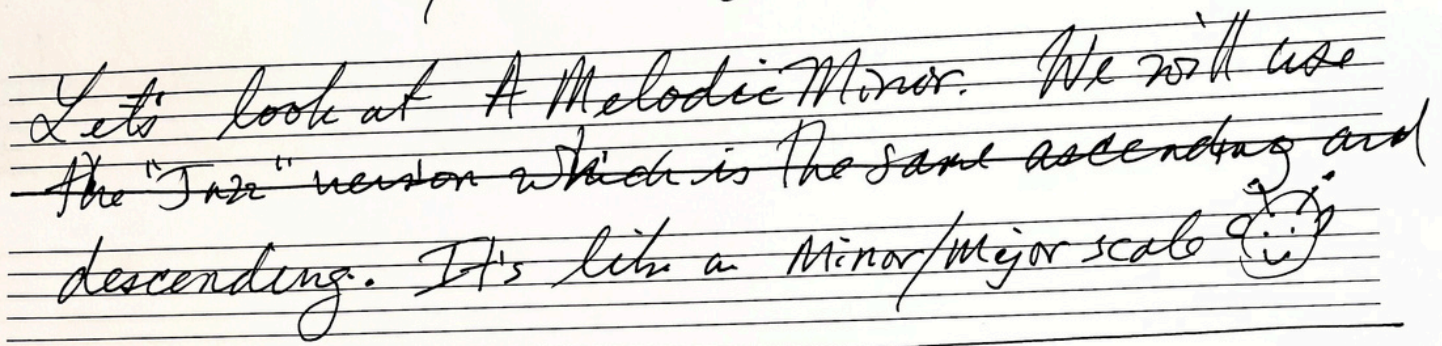 Let's look at A Melodic Minor. We will use
the "Jazz" version which is the same ascending and
descending. It's like a Minor/Major scale